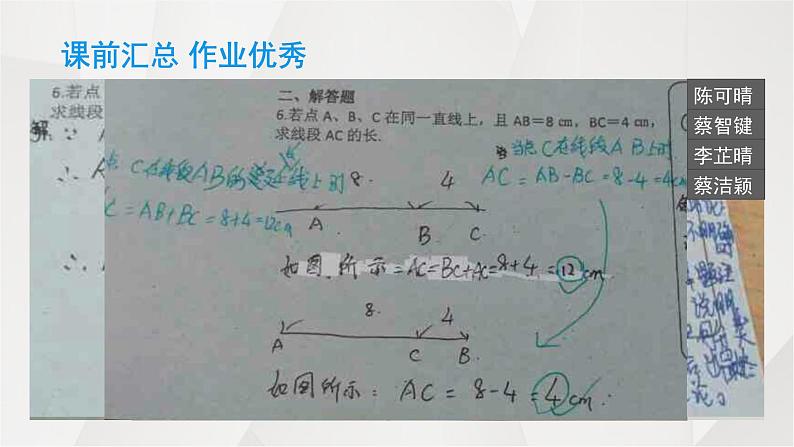 课前汇总 作业优秀
陈可晴
蔡智键
李芷晴
蔡洁颖
6.若点
求线段
解:∵ A
二、解答题
6.若点 A、B、C 在同一直线上，且 AB＝8 ㎝，BC＝4 ㎝，
求线段 AC 的长.
当点C在线段AB上时
AC = AB-BC = 8-4 = 4c
点 C在线段AB的延长线上时
C = AB+BC = 8+4=12cm
8. 4
A B C.
如图所示=AC=BC+AC=8+4=12cm.
8. 4
A C B.
如图所示: AC = 8-4 = 4cm.